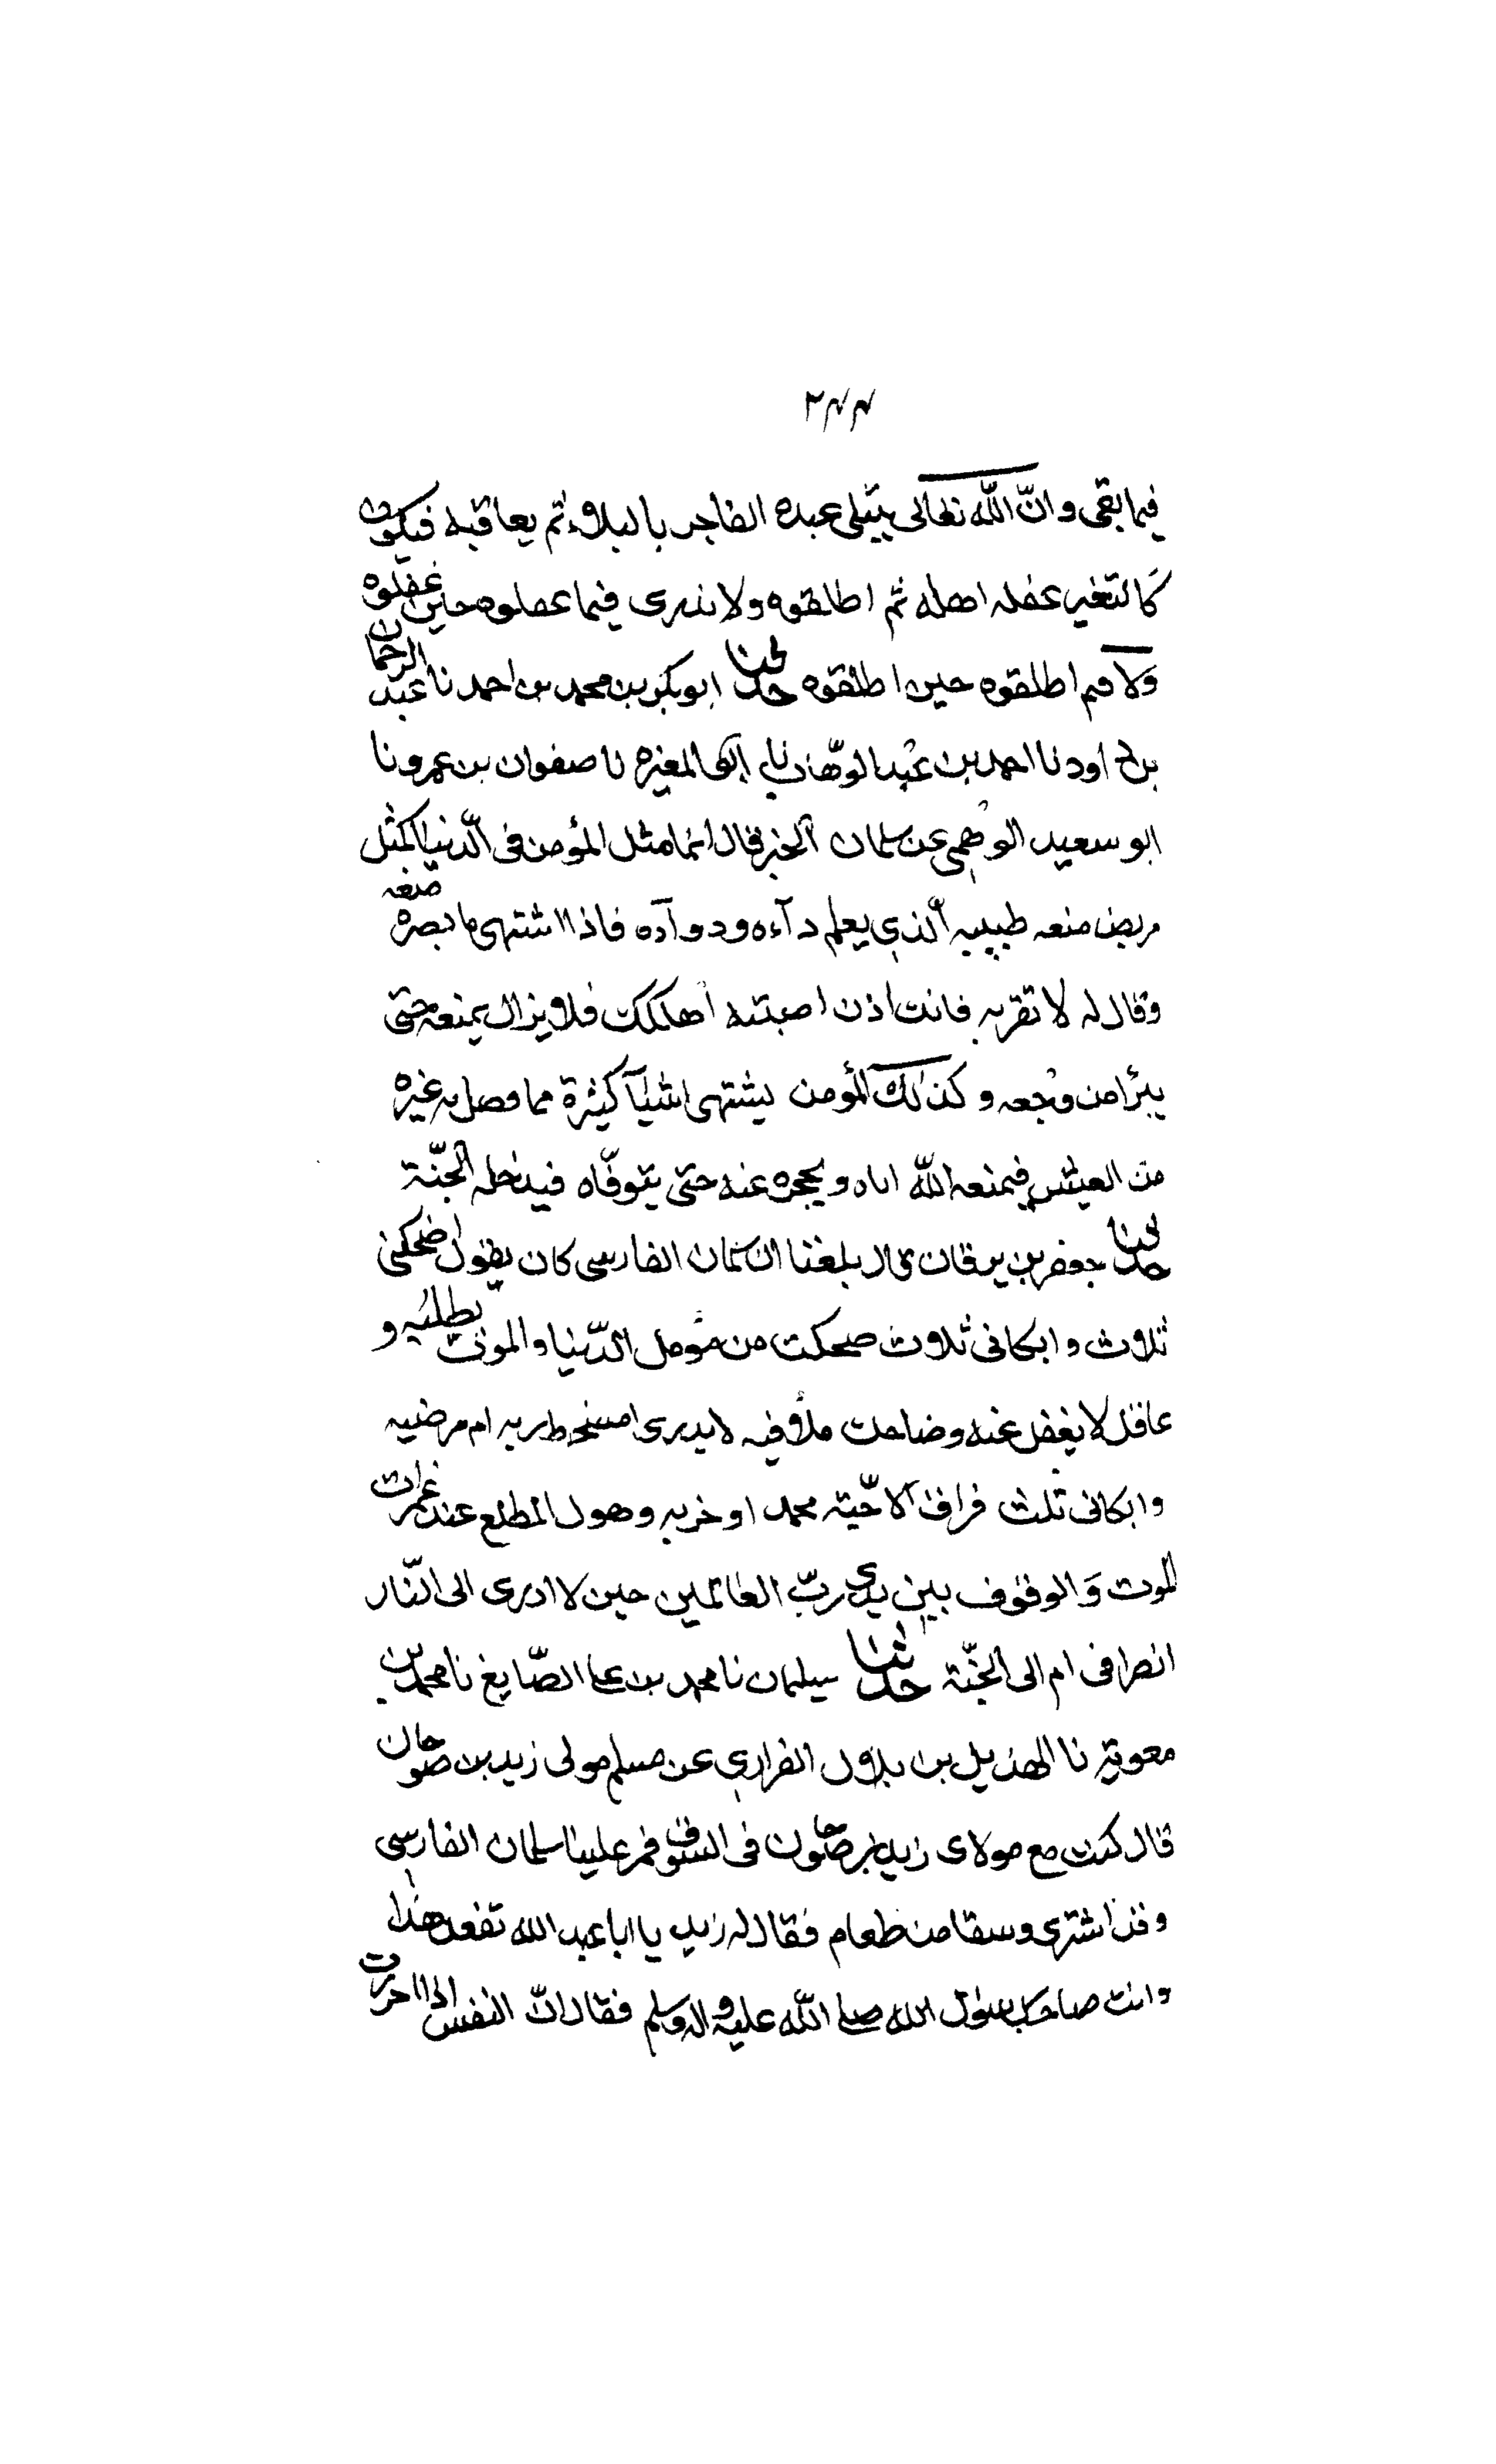 ٢٤٤
فيما بقى و انّ الله تعالى يبتلى عبده الفاجر بالبلاء ثم يعاقبه فيكون
كالبعير عقله اهله ثم اطلقوه ولا يدرى فيما عقلوه حين عقلوه
ولا فيم اطلقوه حين اطلقوه حدثنا ابوبكر بن محمد بن احمد نا عبد الرحمان
بن داود نا احمد بن عبد الوهّاب نا ابو المغيره نا صفوان بن عمرو نا
ابو سعيد الوهبى عن سلمان الخير قال انما مثل المؤمن فى الدّنيا كمثل
مريض معه طبيبه الّذى يعلم دآءه ودوآءه فاذا اشتهى ما يضره منعه
وقال له لا تقربه فانت اذن اصبته اهلكك فلا يزال يمنعه حتى
يبرأ من وجعه و كذالك المؤمن يشتهى اشيآ كثيرة مما فضل به غيره
من العيش فيمنعه الله اياه ويحجزه عنه حتى يتوفّاه فيدخله الجنّة
حدثنا جعفر بن برقان قال بلغنا ان سلمان الفارسى كان يقول اضحكنى
ثلاث و ابكانى ثلاث ضحكت من مؤمل الدّنيا والموت يطلبه و
غافل لا يغفل عنه وضاحك ملأ فيه لا يدرى امسخط ربه ام مرضيه
وابكانى ثلث فراق الاحّبة محمد او حزبه وهول المطلع عند غمرات
الموت وَالوقوف بين يدى ربّ العالمين حين لا ادرى الى النّار
انصرافى ام الى الجنّة حدثنا سليمان نا محمد بن على الصّايغ نا محمد بن
معوية نا الهذيل بن بلال الفزارى عن مسلم مولى زيد بن صوحان
قال كنت مع مولاى زيد بن صوحان فى السوق فمر علينا سلمان الفارسى
وقد اشترى وسقا من طعام فقال له زيد يا ابا عبد الله تفعل هذا
وانت صاحب رسول الله صلى الله عليه واله وسلم فقال انّ النفس اذا احرزت